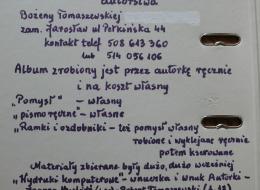 autorstwa
Bożeny Tomaszewskiej
zam. Jarosław ul Pełkińska 44
kontakt telef 508 613 360
lub 514 056 106
Album zrobiony jest przez autorkę ręcznie
i na koszt własny
"Pomysł" – własny
"pismo ręczne" – własne
"Ramki i ozdobniki – też pomysł własny
robione i wyklejane ręcznie
potem kserowane
Materiały zbierane były dużo, dużo wcześniej
"Wydruki komputerowe" – wnuczka i wnuk Autorki –